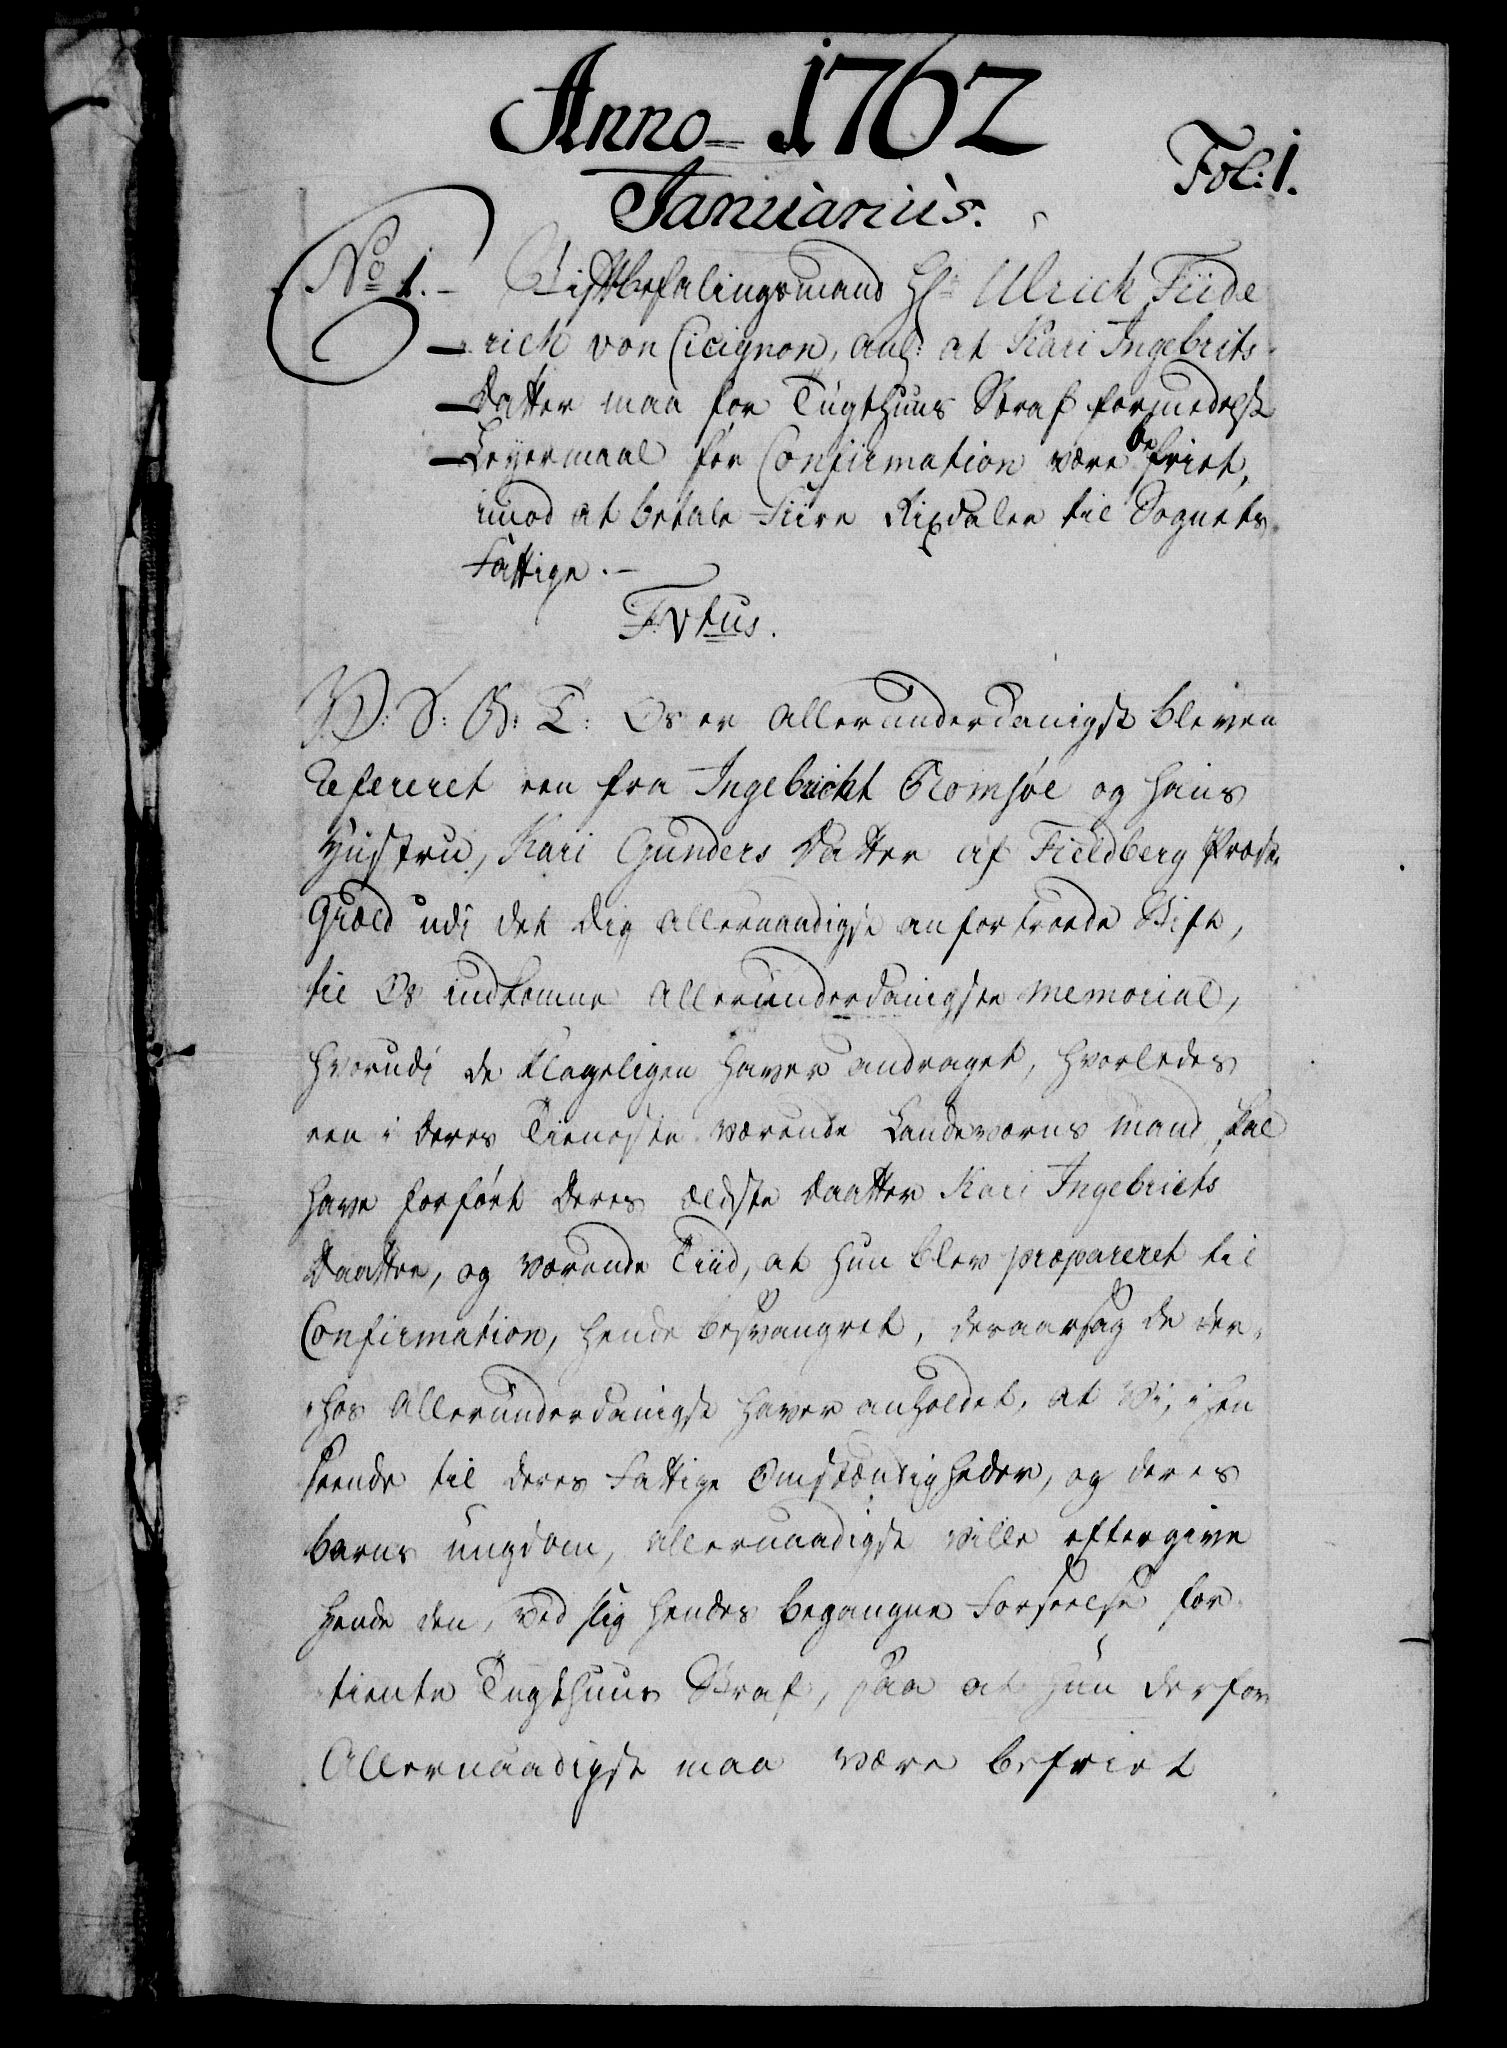 Anno 1762
Fol: 1.
Januarius.
No 1. Stiftbefalingsmand Hr Ulrich Fride
rich von Cicignon, anl: at Kari Ingebrits
Datter maa for Tugthuus Straf formedelst
Leyermaal før Confirmation være befriet,
imod at betale Fiire Rixdaler til Sognets
Fattige.
F: V tus.
P: S: G: T: Os er allerunderdanigst bleven
Refereret een fra Ingebricht Romsøe og hans
Hustru, Kari Gunders Datter af Fieldberg Præste
Gield udi det dig allernaadigst anfortroede Stift,
til Os indkomne allerunderdanigste Memorial,
hvorudi de klageligen haver andraget, hvorledes
een i deres Tieneste værende Landeværns Mand skal
have forført deres ældste Daatter Kari Ingebrichts
Daatter, og værende Tiid, at hun blev præpareret til
Confirmation, hende besvangret, deraarsag de der-
hos allerunderdanigst haver anholdet, at Vi, i hen
seende til deres Fattige Omstændigheder, og deres
barns ungdom, allernaadigst ville eftergive
hende den, ved slig hendes begangne Forseelse for-
tiente Tugthuus Straf, paa at hun derfor
Allernaadigst maa være befriet